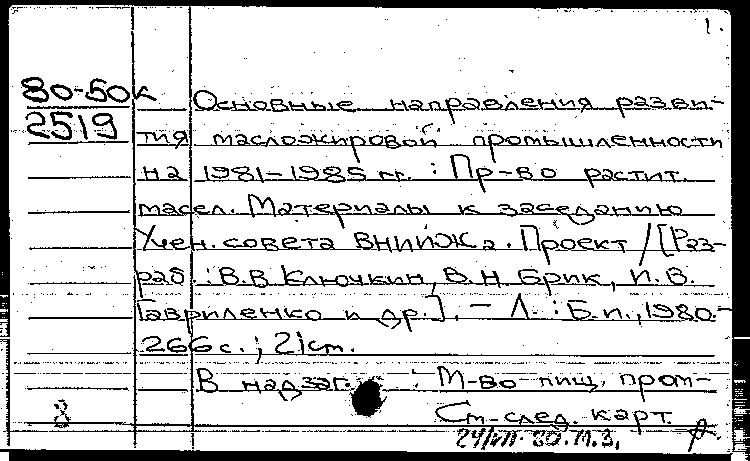 1.
80-50к
2519
Основные направления разви-
тия масложировой промышленности
на 1981-1985 гг. : Пр-во растит.
масел. Материалы к заседанию
Учен. совета ВНИИЖа. Проект / [Раз-
раб.: В.В Ключкин, В.Н. Брик, И.В.
Гавриленко и др.]. - Л. : Б.и., 1980.-
266 с. ; 21 см.
В надзаг. : М-во пищ. пром-
См-след. карт.
8
24/VII-80.М.З.